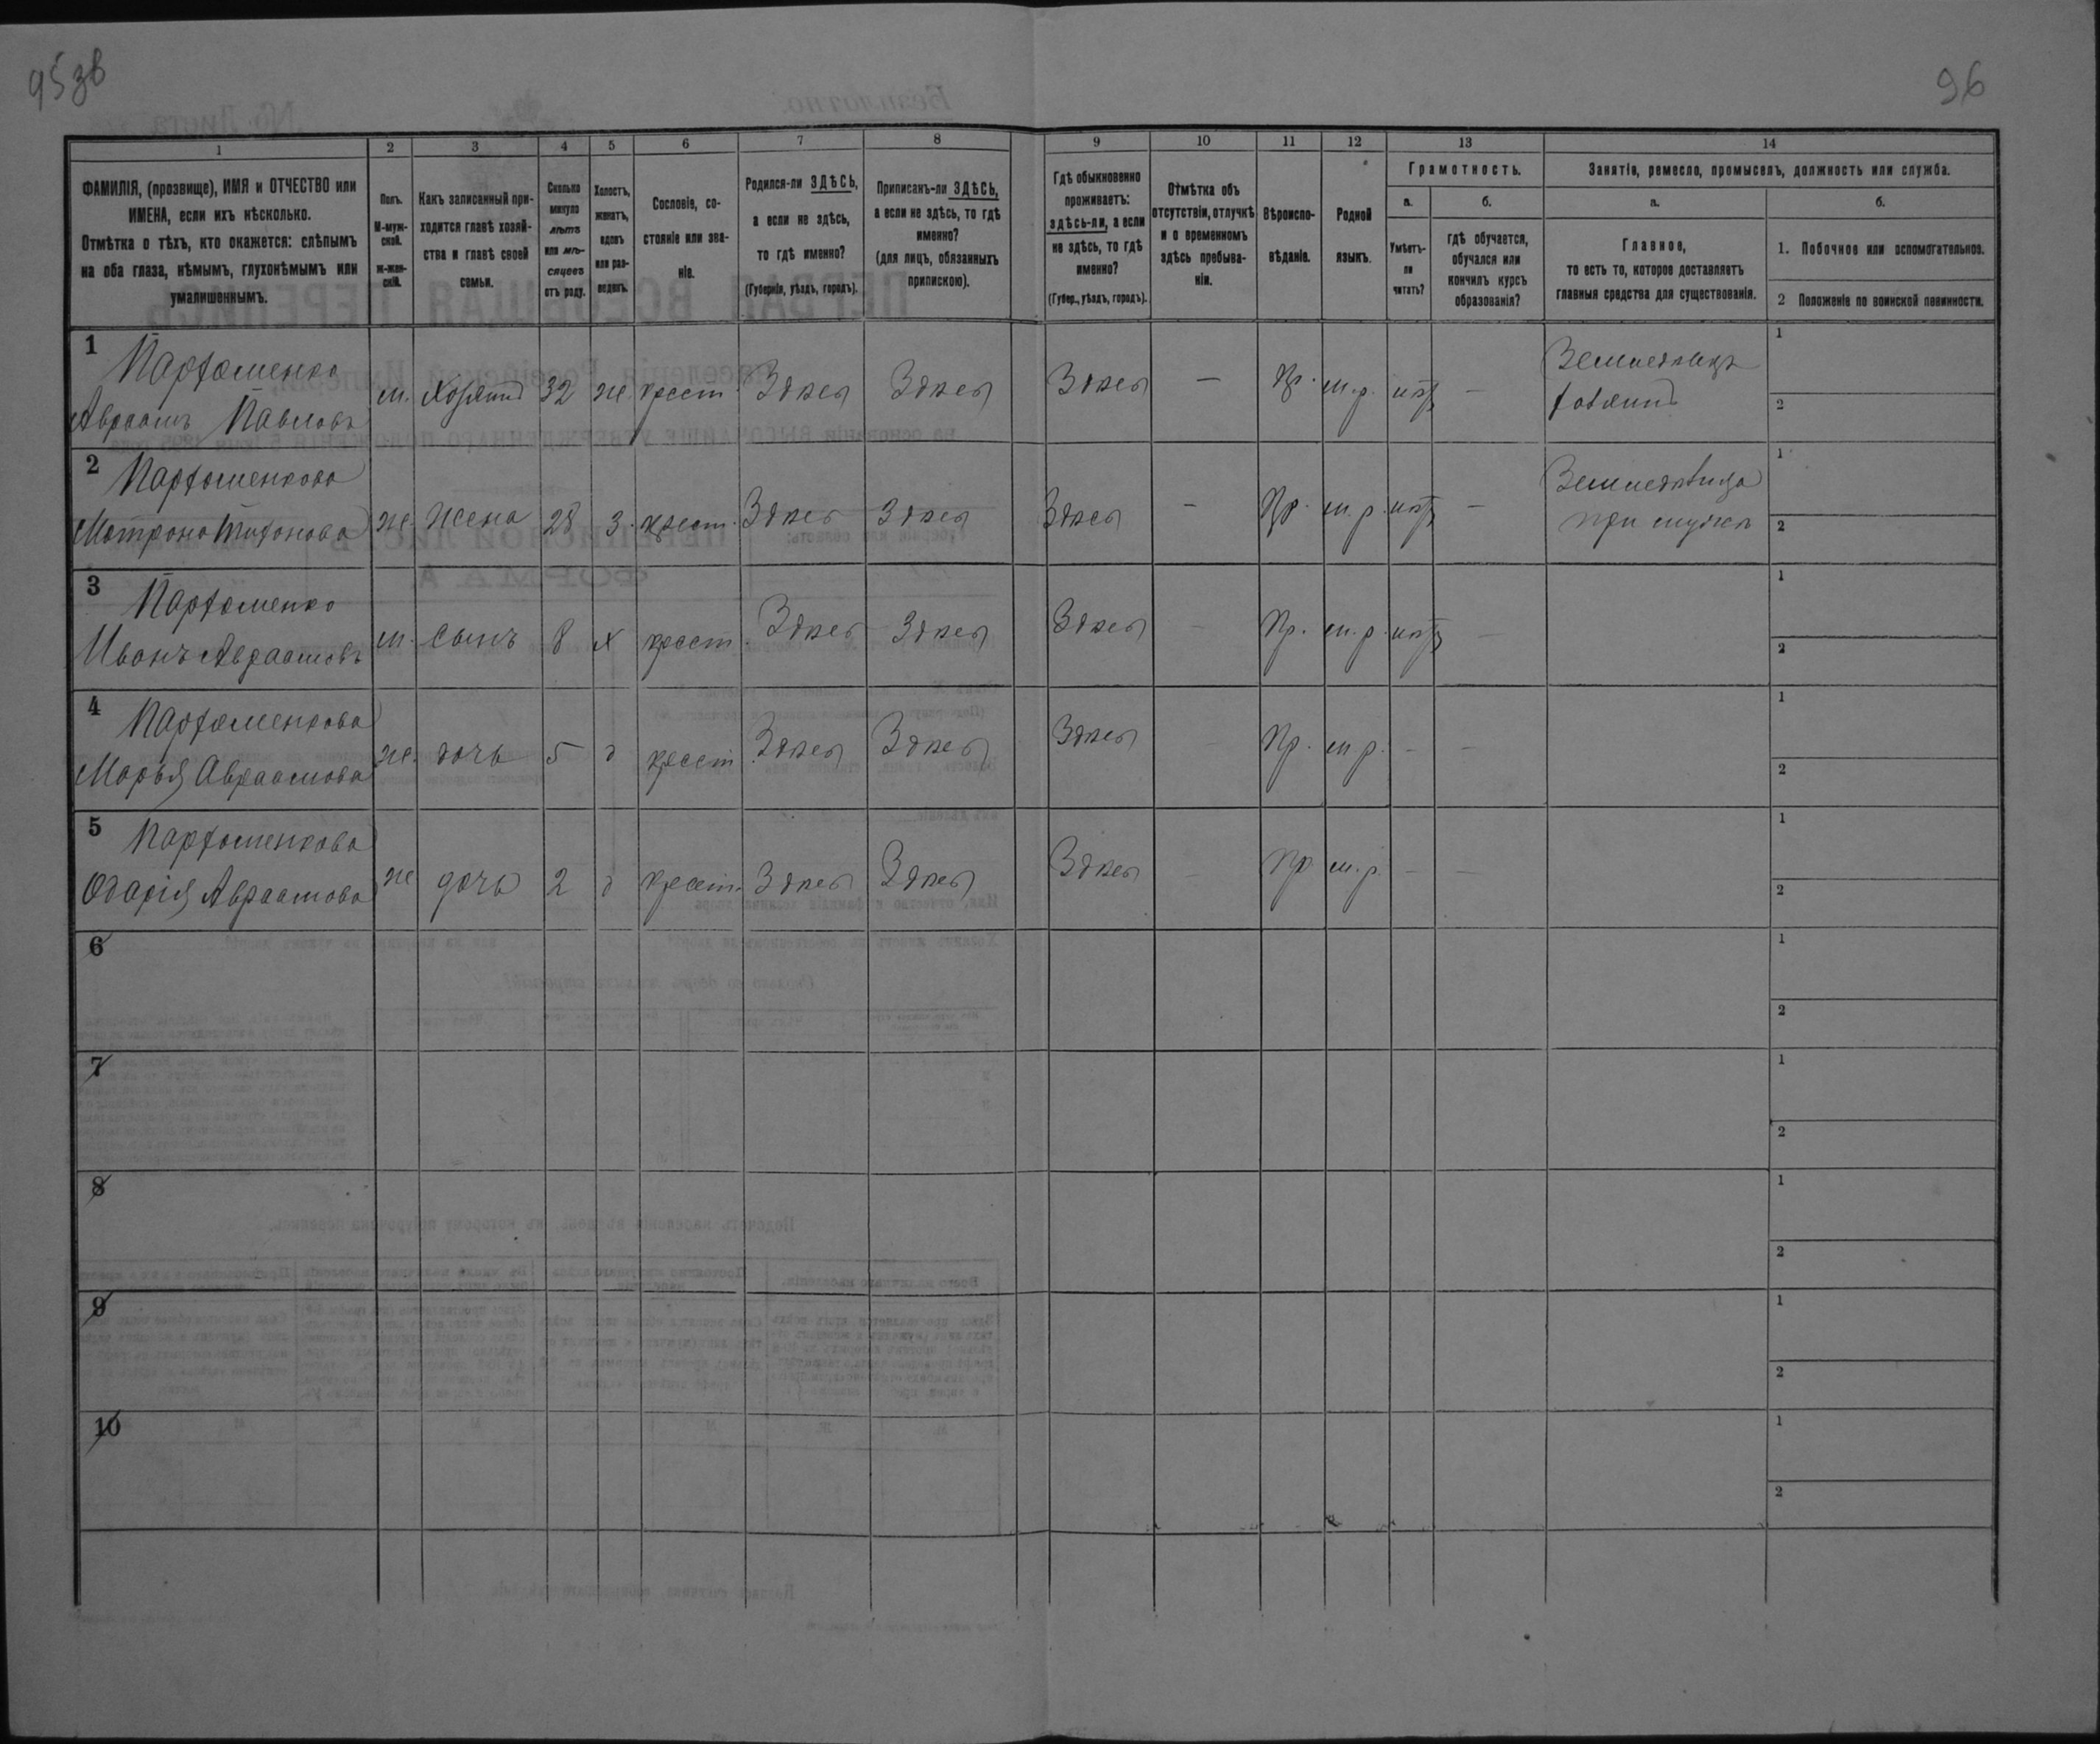 95зв
96
1 2 3 4 5 6 7 8 9 10 11 12 13 14
ФАМИЛІЯ, (прозвище), ИМЯ и ОТЧЕСТВО или ИМЕНА, если ихъ нѣсколько.
Отмѣтка о тѣхъ, кто окажется: слѣпымъ на оба глаза, нѣмымъ, глухонѣмымъ или умалишеннымъ.
Полъ. М-муж-ской. ж-жен-скій.
Какъ записанный при-ходится главѣ хозяй-ства и главѣ своей семьи.
Сколько минуло лѣтъ или мѣ-сяцевъ отъ роду.
Холостъ, женатъ, вдовъ или раз-веденъ.
Сословіе, со-стояніе или зва-ніе.
Родился-ли ЗДѢСЬ, а если не здѣсь, то гдѣ именно? (Губернія, уѣздъ, городъ).
Приписанъ-ли ЗДѢСЬ, а если не здѣсь, то гдѣ именно? (для лицъ, обязанныхъ припискою).
Гдѣ обыкновенно проживаетъ: здѣсь-ли, а если не здѣсь, то гдѣ именно? (Губер., уѣздъ, городъ).
Отмѣтка объ отсутствіи, отлучкѣ и о временномъ здѣсь пребыва-ніи.
Вѣроиспо-вѣданіе.
Родной языкъ.
Грамотность.
а. Умѣетъ-ли читать?
б. гдѣ обучается, обучался или кончилъ курсъ образованія?
Занятіе, ремесло, промыселъ, должность или служба.
а. Главное, то есть то, которое доставляетъ главныя средства для существованія.
б. 1. Побочное или вспомогательное.
2 Положеніе по воинской повинности.
1 Парфоменко
Авраамъ Павловъ м. хозяинъ 32 ж. крест. Здѣсь Здѣсь Здѣсь — Пр. м.р. нѣтъ — Земледѣлецъ
хозяинъ
1
2
2 Парфоменкова
Матрона Тифонова ж. жена 28 з. крест. Здѣсь Здѣсь Здѣсь — Пр. м.р. нѣтъ — Земледѣлица
при мужѣ
1
2
3 Парфоменко
Иванъ Авраамовъ м. сынъ 8 х крест. Здѣсь Здѣсь Здѣсь — Пр. м.р. нѣтъ —
1
2
4 Парфоменкова
Марья Авраамова ж. дочь 5 д крест. Здѣсь Здѣсь Здѣсь — Пр. м.р. — —
1
2
5 Парфоменкова
Одарія Авраамова ж дочь 2 д крест. Здѣсь Здѣсь Здѣсь — Пр м.р. — —
1
2
6
1
2
7
1
2
8
1
2
9
1
2
10
1
2